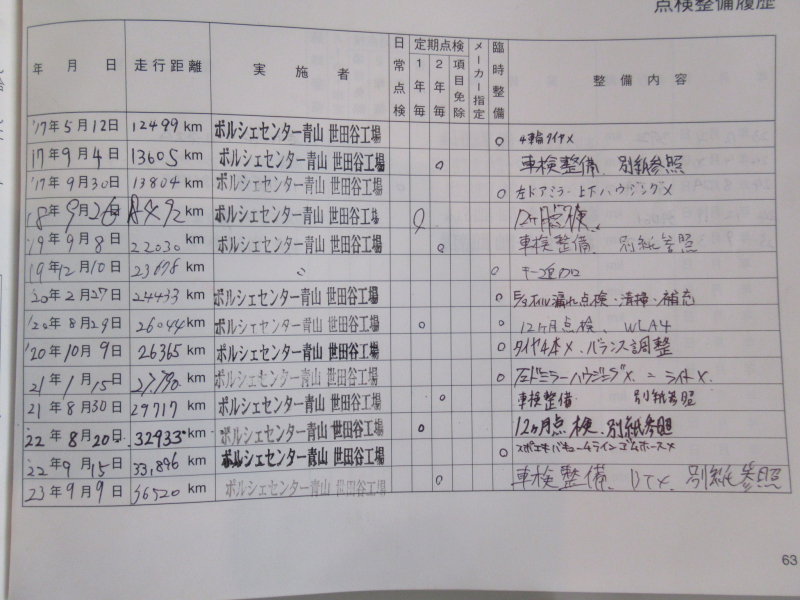 点検整備履歴
年 月 日 走行距離 実施者 日常点検 定期点検 1年毎 2年毎 項目免除 メーカー指定 臨時整備 整備内容
'17年5月12日 12499km ポルシェセンター青山 世田谷工場 ○ 4輪タイヤ×
17年9月4日 13605km ポルシェセンター青山 世田谷工場 ○ 車検整備、別紙参照
'17年9月30日 13804km ポルシェセンター青山 世田谷工場 ○ 左ドアミラー上下ハウジング×
18年9月26日 km ポルシェセンター青山 世田谷工場 ○ 12ヶ月点検、
'19年9月8日 22030km ポルシェセンター青山 世田谷工場 ○ 車検整備、別紙参照
19年12月10日 23678km 〃 ○
'20年2月27日 24433km ポルシェセンター青山 世田谷工場 ○ オイル漏れ点検・清掃・補充
'20年8月29日 26044km ポルシェセンター青山 世田谷工場 ○ 12ヶ月点検、WLA4
'20年10月9日 26365km ポルシェセンター青山 世田谷工場 ○ タイヤ4本×、バランス調整
21年1月15日 27790km ポルシェセンター青山 世田谷工場 ○ 左ドミラーハウジング×
21年8月30日 29717km ポルシェセンター青山 世田谷工場 ○ 車検整備 別紙参照
'22年8月20日 32933km ポルシェセンター青山 世田谷工場 ○ 12ヶ月点検、別紙参照
'22年9月15日 33,896km ポルシェセンター青山 世田谷工場 ○ バキュームラインゴムホース×
23年9月9日 36520km ポルシェセンター青山 世田谷工場 ○ 車検整備、別紙参照
63